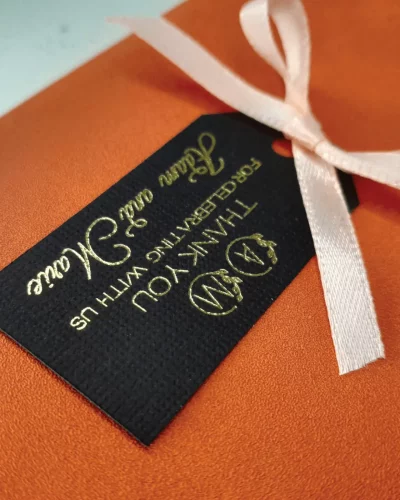 A M
THANK YOU
FOR CELEBRATING WITH US
Adam and Marie